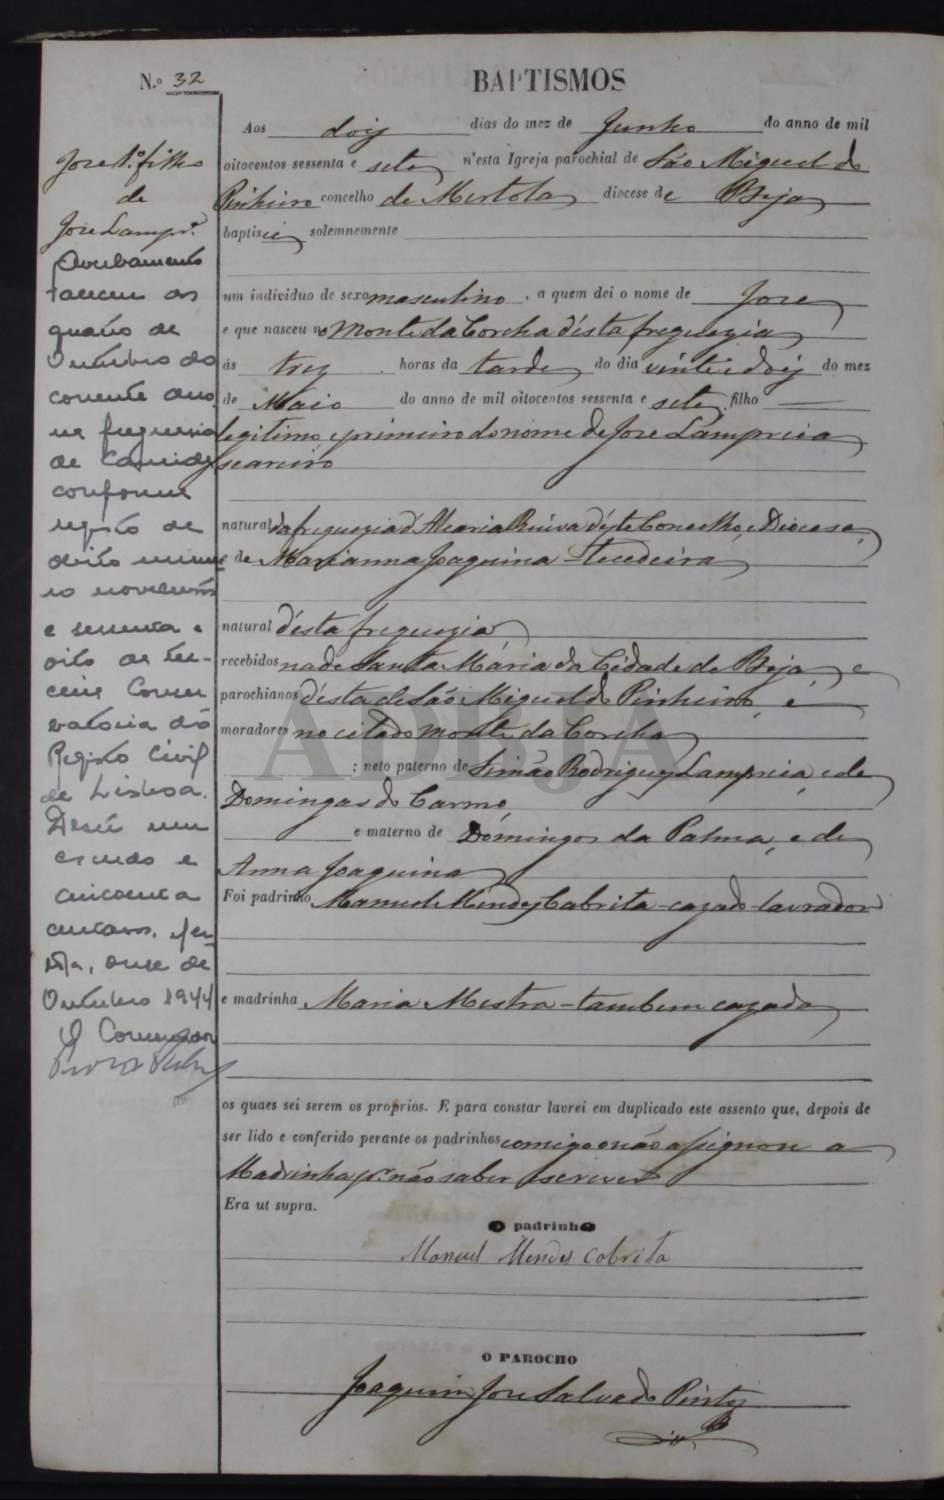 N.º 32
BAPTISMOS
Jose 1.º filho
de
Jose Lampr.ª
Averbamento
faleceu aos
quatro de
Outubro do
corrente ano,
na freguesia
de Camões
conforme
registo de
obito numero
novecentos
e setenta e
oito da ter-
ceira Conser
vatoria do
Registo Civil
de Lisboa.
Desta um
escudo e
cincoenta
centavos.
onze de
Outubro 1944
O Conservador
Aos dois dias do mez de Junho do anno de mil
oitocentos sessenta e sete n'esta Igreja parochial de São Miguel do
Pinheiro concelho de Mertola diocese de Beja
baptisei solemnemente
um individuo de sexo masculino, a quem dei o nome de Jose
e que nasceu no Monte da Corcha d'ésta freguezia
ás trez horas da tarde do dia vinte e dois do mez
de Maio do anno de mil oitocentos sessenta e sete, filho
legitimo e primeiro do nome de Jose Lampreia
seareiro
natural da freguezia d'Alcaria Ruiva d'éste Concelho, e Diocese,
e de Marianna Joaquina - tecedeira
natural d'ésta freguezia,
recebidos na de Santa Mária da Cidade de Beja, e
parochianos d'ésta de São Miguel do Pinheiro, e
moradores no citado monte da Corcha
ADBJA
; neto paterno de Simão Rodrigues Lampreia, e de
Domingas do Carmo,
e materno de Domingos da Palma, e de
Anna Joaquina
Foi padrinho Manuel Mendes Cabrita - cazado - lavrador
e madrinha Maria Mestra - tambem cazada
os quaes sei serem os proprios. E para constar lavrei em duplicado este assento que, depois de
ser lido e conferido perante os padrinhos comigo e não assignou a
Madrinha p.r não saber escrever
Era ut supra.
O padrinho
Manuel Mendes Cabrita
O PAROCHO
Joaquim Jose Salvado Pinty